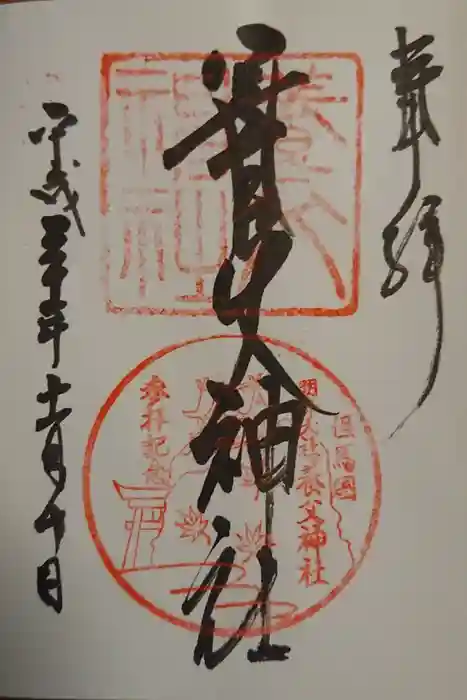 奉拝
養父神社
養父神社
但馬國
養父神社
参拝記念
平成三十年十一月十日